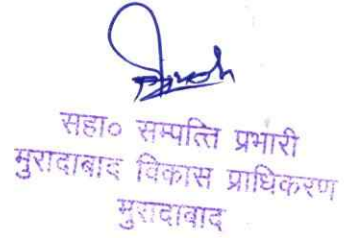 सहा० सम्पत्ति प्रभारी
मुरादाबाद विकास प्राधिकरण
मुरादाबाद